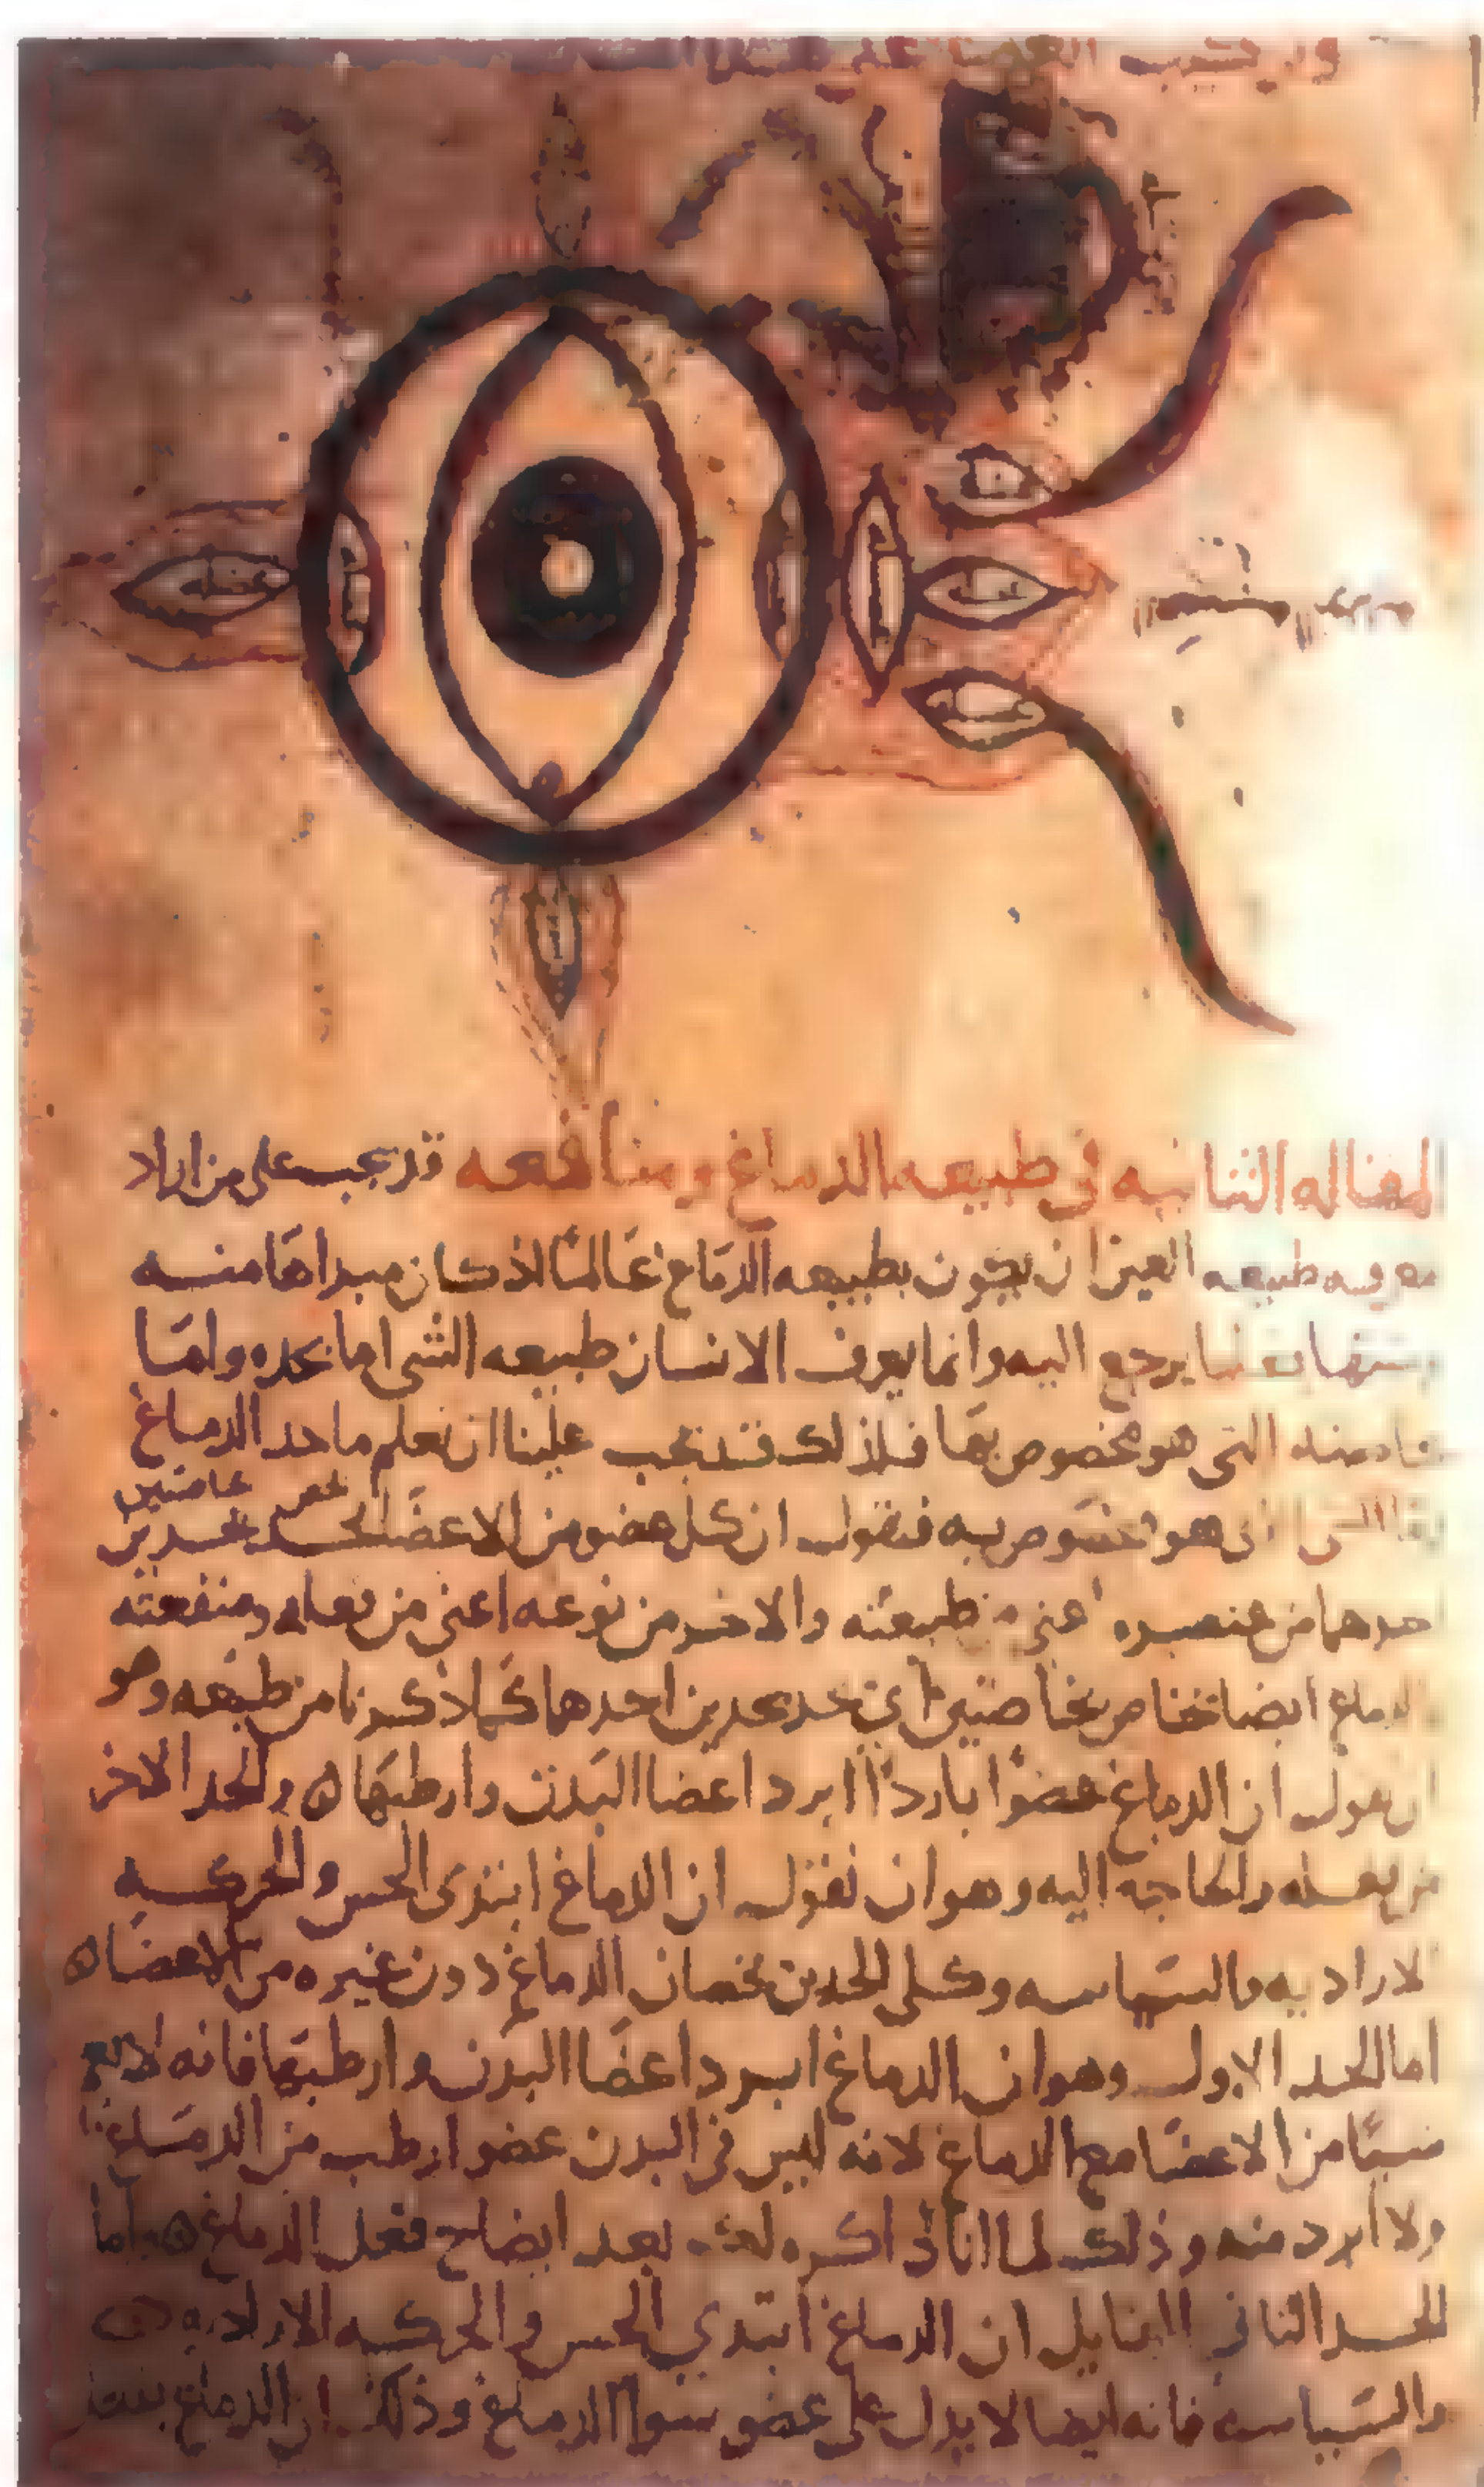 وتركيب العضل على
عضله
عضله
عضله
المقاله الثانيه في طبيعه الدماغ ومنافعه قد يجب على من اراد
معرفه طبيعه العين ان يكون بطبيعه الدماغ عالما اذ كان مبداها منه
يرجع اليه وانما يعرف الانسان طبيعه الشي اما بحده واما
التي هو مخصوص بها فلذلك قد يجب علينا ان نعلم ما حد الدماغ
هو مخصوص به فنقول ان كل عضو من الاعضا يحد بحدين
يخص خاصتين
احدهما من عنصره اعني من طبيعته والاخر من نوعه اعني من فعله ومنفعته
الدماغ ايضا بخاصتين اي يحد بحدين احدهما كما ذكرنا من طبيعه وهو
ان نقول ان الدماغ عضوا باردا ابرد اعضا البدن وارطبها ه والحد الاخر
من فعله والحاجه اليه وهو ان نقول ان الدماغ ابتدى الحس والحركه
الاراديه والسياسه وكلى الحدين يخصان الدماغ دون غيره من الاعضا ه
اما الحد الاول وهو ان الدماغ ابرد اعضا البدن وارطبها فانه
شيئا من الاعضا مع الدماغ لانه ليس في البدن عضو ارطب من الدماغ
ولا ابرد منه وذلك لما انا ذاكره لك بعد ايضاح فعل الدماغ ه اما
الحد الثاني القايل ان الدماغ ابتدي الحس والحركه الاراديه
والسياسه فانه ايضا لا يدل على عضو سوا الدماغ وذلك ان الدماغ